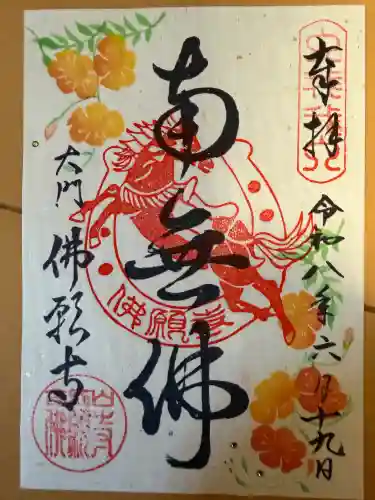 奉拝
令和八年六月十九日
南無佛
佛願寺
大門
佛願寺